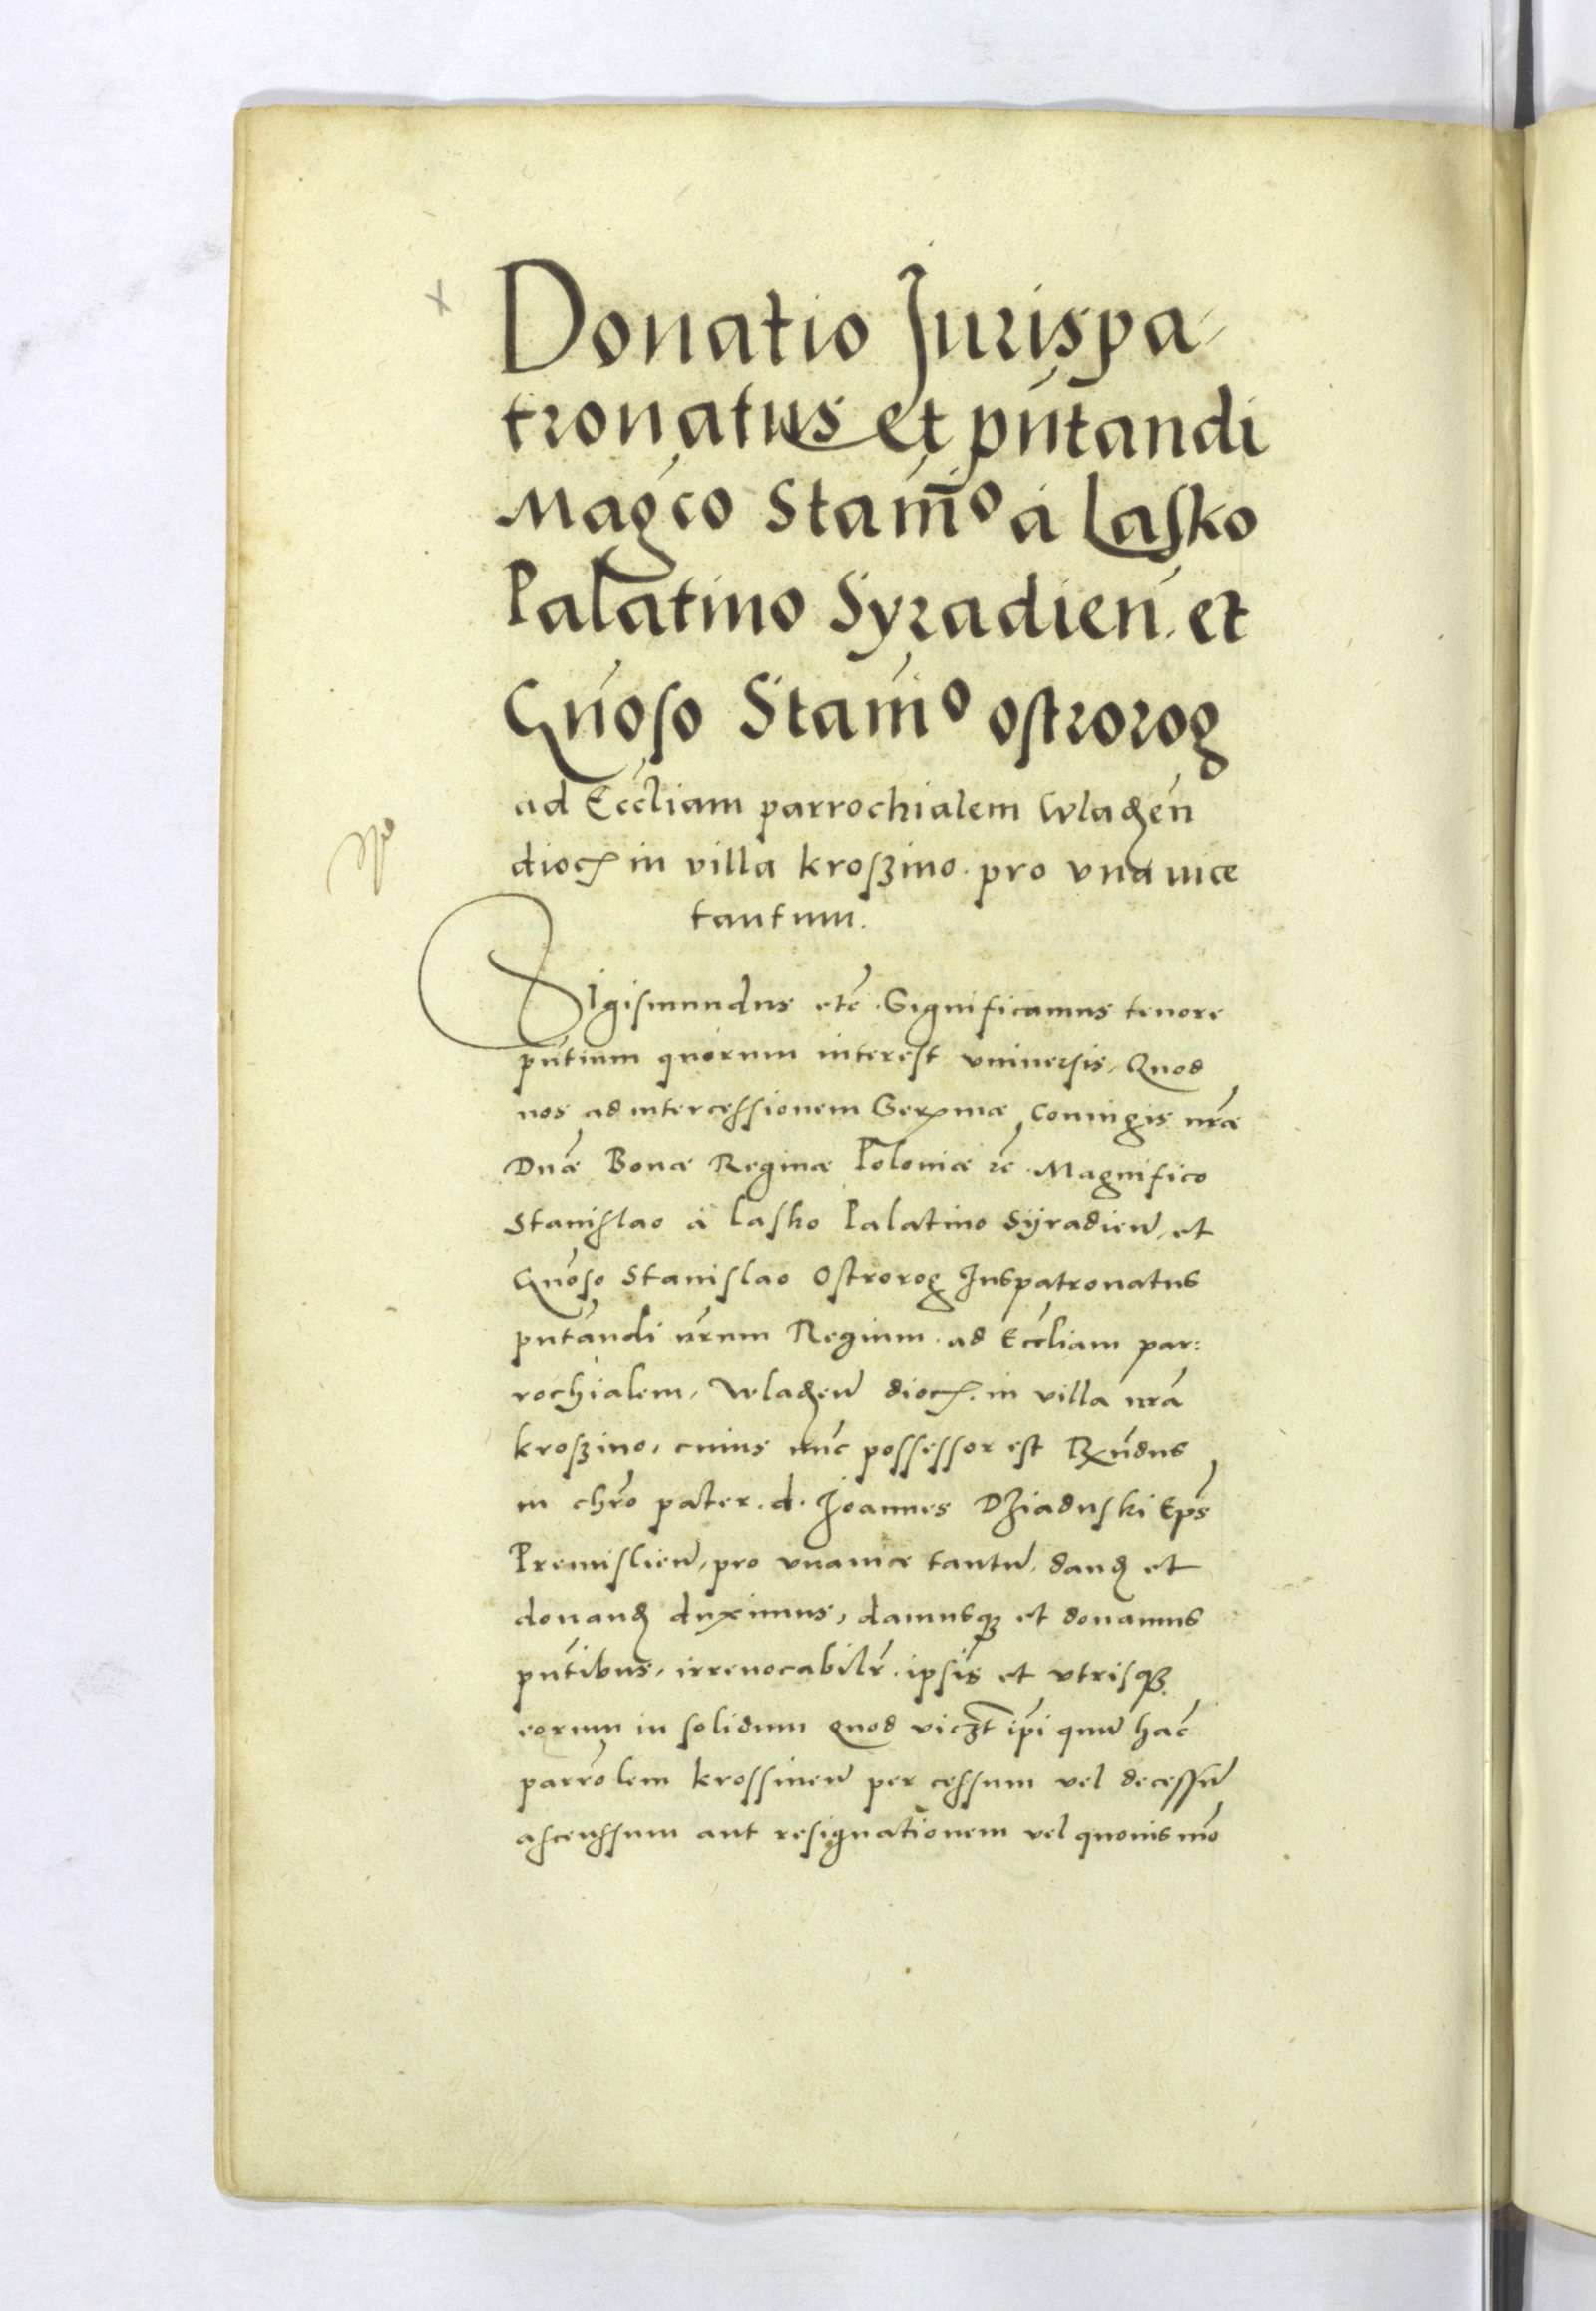 Donatio Jurispa-
tronatus et pñtandi
Magco Stanio à Lasko
Palatino Syradień. et
Gnoso Stanio ostrorog
ad Eccliam parrochialem Wladień
dioc. in villa kroszino. pro vna uice
tantum.
Sigismundus etc. Significamus tenore
pñtium quorum interest vniuersis, Quod
nos ad intercessionem Sermae Coniugis nrae
Dnae Bonae Reginae Poloniae etc. Magnifico
Stanislao à Lasko Palatino Syradień, et
Gnoso Stanislao Ostrorog Juspatronatus
pntandi nrum Regium. ad Eccliam par:
rochialem, Wladień dioc. in villa nra
kroszino, cuius nunc possessor est Rndus
in chro pater. d. Joannes Dziaduski Eps
Premislień, pro vna uice tantum. dand et
donand duximus, damusq3 et donamus
pntibus, irreuocabilr. ipsis et vtrisq3.
eorum in solidum Quod viczt ipi quum hac
parrolem krossinen per cessum vel decessum
ascensum aut resignationem vel quouis mo